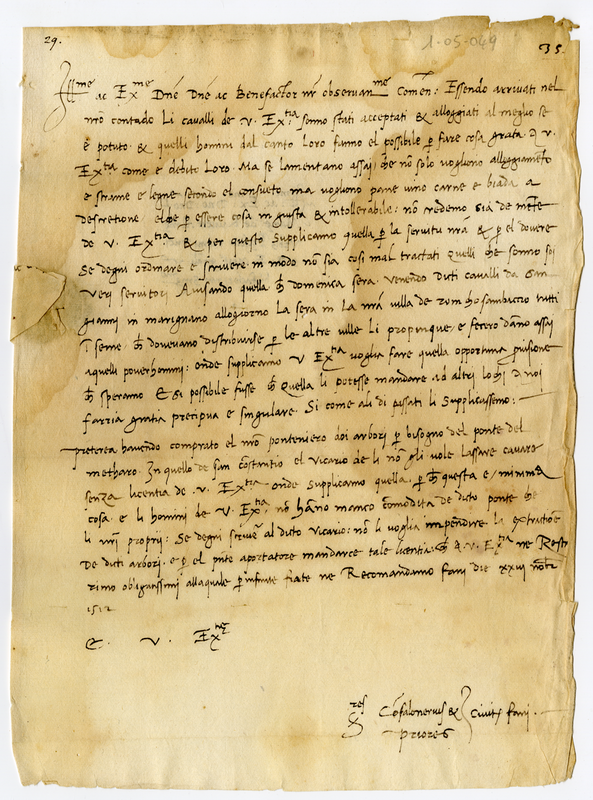 29.
1-05-049
35.
Ill.me ac Ex.me Dne Dne ac Benefactor nr observan.me Comen: Essendo arrivati nel
nro contado Li cavalli de v. Ex.tia sonno stati acceptati & alloggiati al meglio se
è potuto. & quelli homini dal canto Loro fanno el possibile p fare cosa grata A v.
Ex.tia come è debito Loro. Ma se lamentano assai, che nõ solo vogliono alloggiamẽto
e strame e legne secondo el consueto, ma vogliono pane vino carne e biada a
descretione: el che p essere cosa ingiusta & intollerabile: nõ credemo sia de mẽte
de v. Ex.tia. & per questo supplicamo quella p la servitu nrã & p el dovere
Se degni ordinare e scrivere in modo nõ sia cosi mal tractati quelli che sonno soi
veri servitori Avisando quella ch domenica sera. venendo dicti cavalli da San
gianni in marignano allogiorno La sera in La nrã villa de tutti
inseme. ch dovevano distribuirse p le altre ville Li propinque, e fecero dãno assai
aquelli poverhomini: onde supplicamo v Ex.tia voglia fare quella opportuna pvisione
ch speramo E si possibile fusse ch Quella li potesse mandare ad altri lochi a noi
farria gratia precipua e singulare. Si come ali di passati li supplicassemo:
preterea havendo comprato el nrõ ponteniero doi arbori p bisogno del ponte del
metharo. In quello de san costantio el vicario de li nõ gli vole lassare cavare
senza licentia de .v. Ex.tia onde supplicamo quella. p ch questa e minima
cosa. e li homini de v. Ex.tia nõ hãno manco cõmodita de dicto ponte che
li nri proprij: Se degni scrivere al dicto vicario: nõ li voglia impendire la extractiõe
De dicti arbori. e p el pñte aportatore mandarce tale licentia. ch A. v. Ex.tia ne Rest
rimo obligatissimi allaquale p infinite fiate ne Recomandamo fani die xxiij
1512
E. v. Ex.
Cõfalonerius & Civit. fani.
Priores